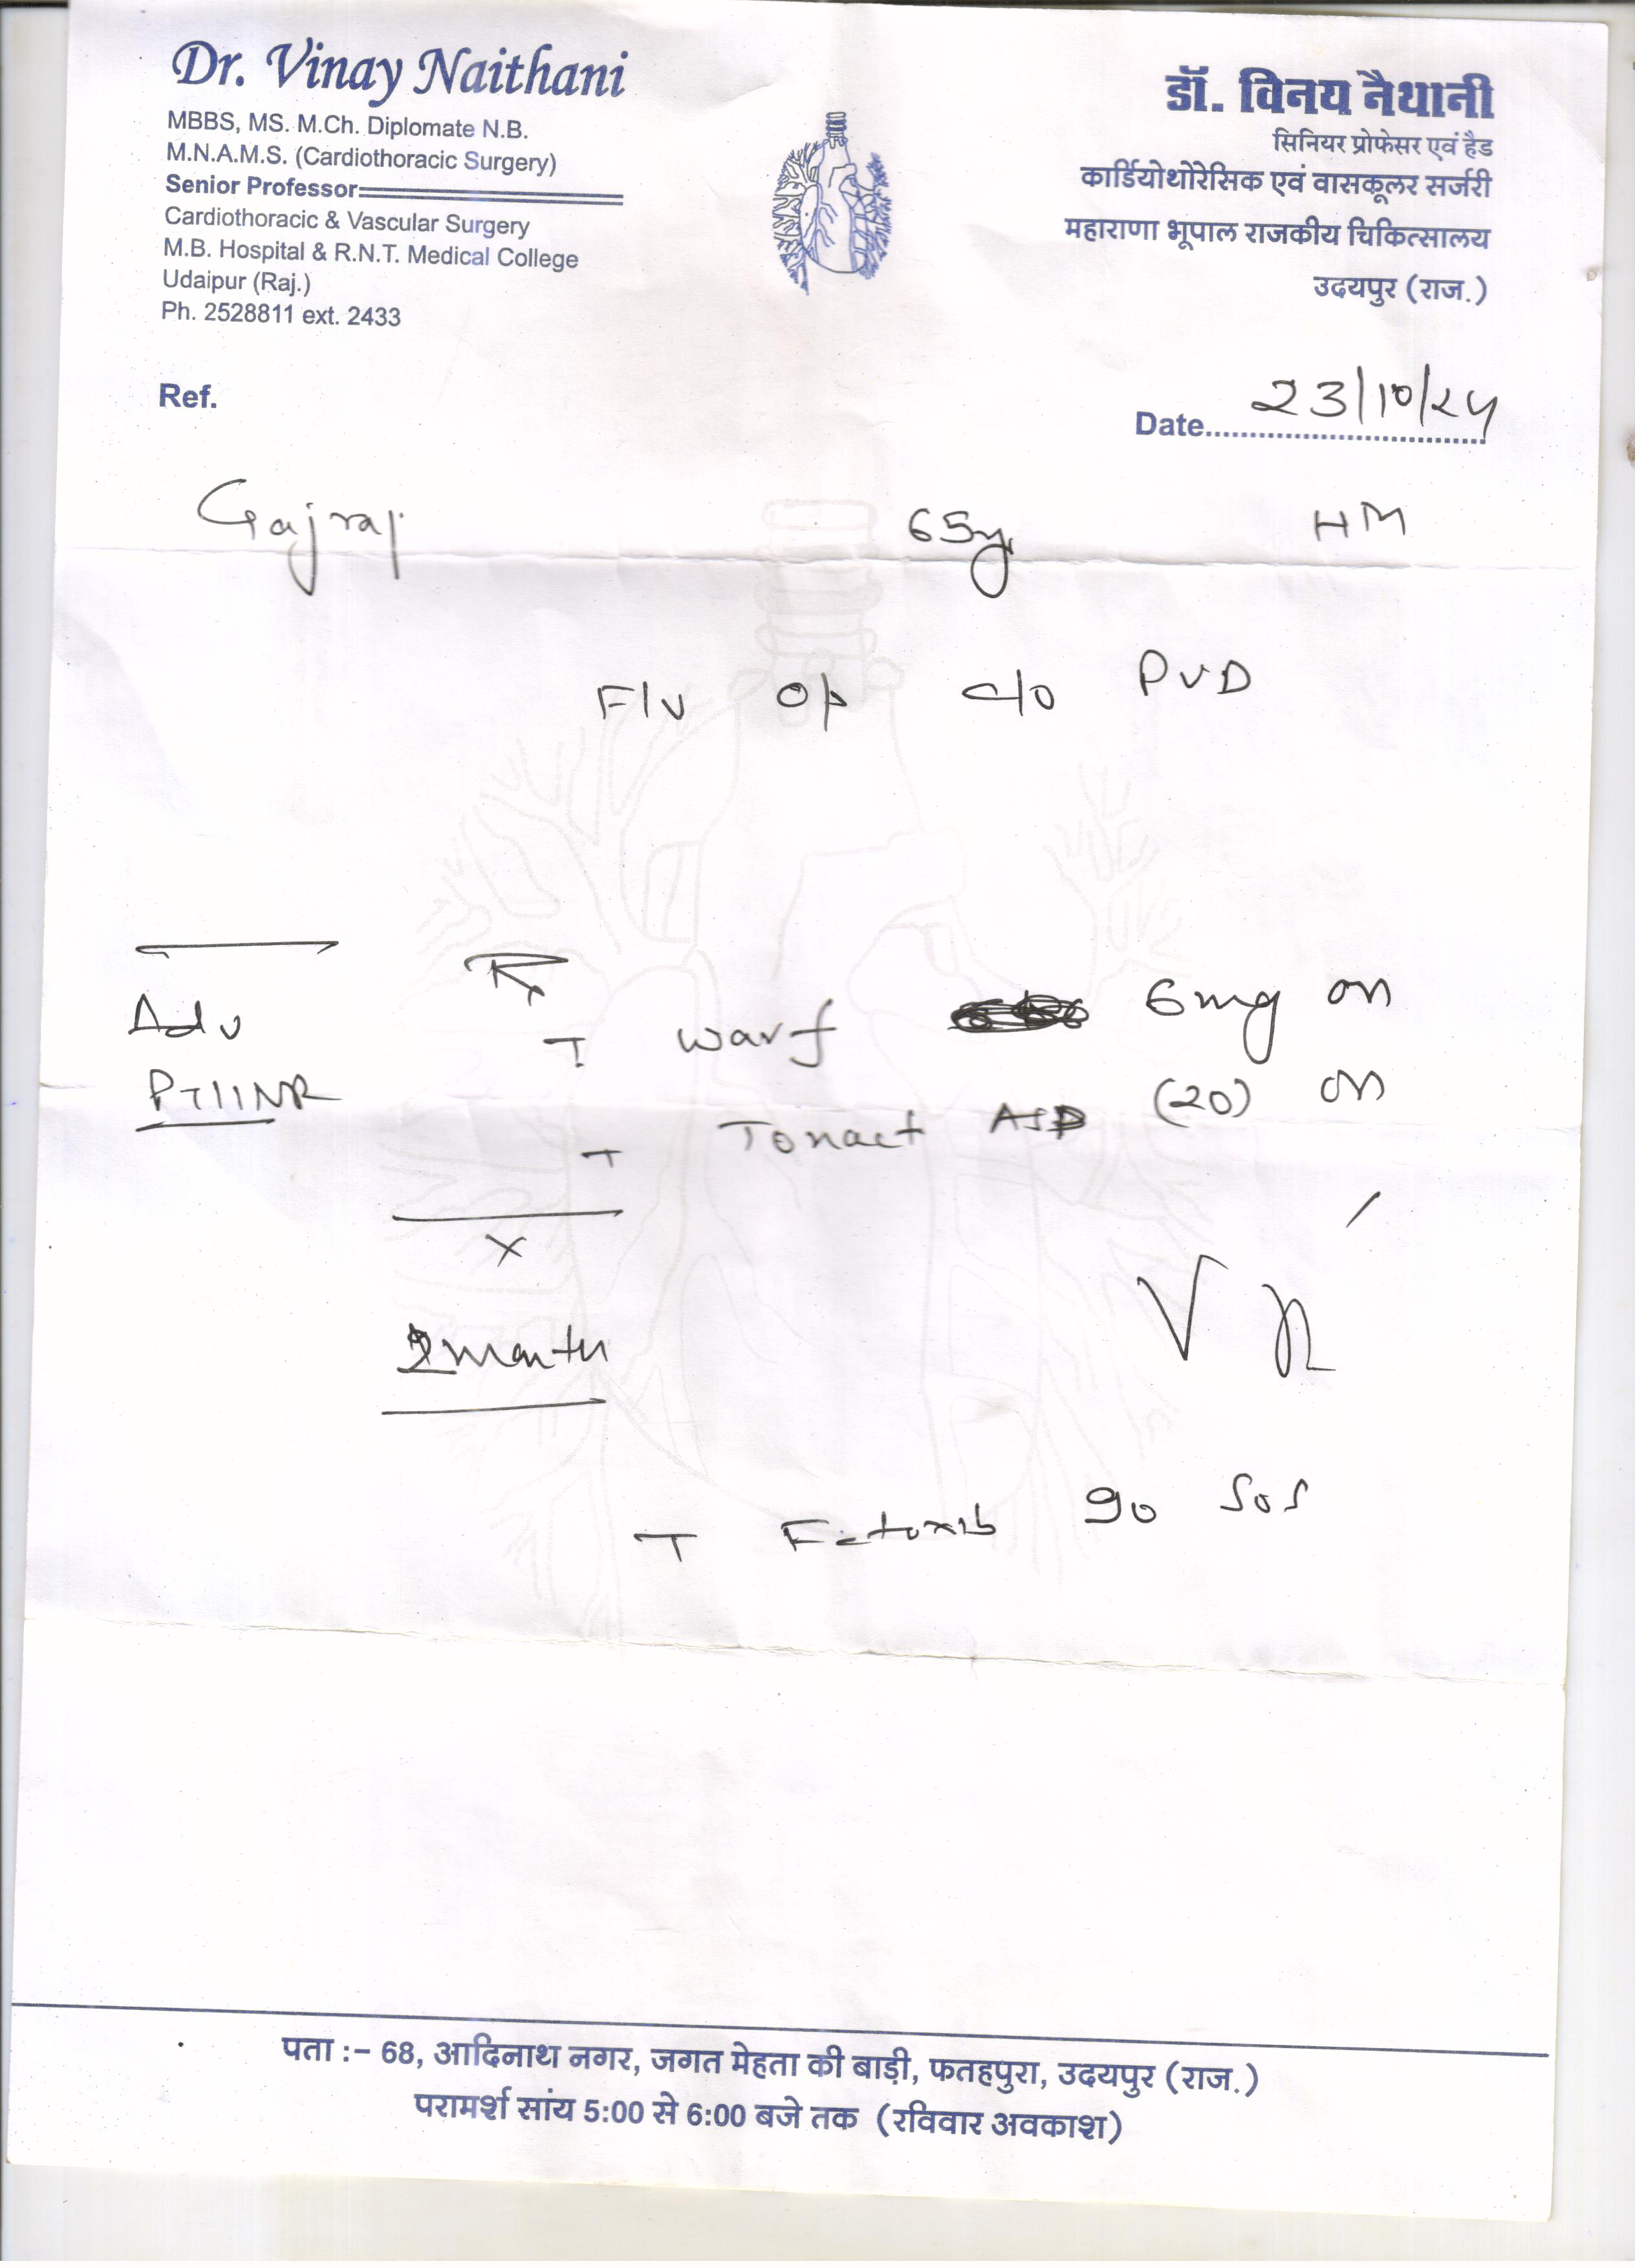 Dr. Vinay Naithani
MBBS, MS. M.Ch. Diplomate N.B.
M.N.A.M.S. (Cardiothoracic Surgery)
Senior Professor
Cardiothoracic & Vascular Surgery
M.B. Hospital & R.N.T. Medical College
Udaipur (Raj.)
Ph. 2528811 ext. 2433
डॉ. विनय नैथानी
सिनियर प्रोफेसर एवं हैड
कार्डियोथोरेसिक एवं वासकूलर सर्जरी
महाराणा भूपाल राजकीय चिकित्सालय
उदयपुर (राज.)
Ref.
Date 23/10/24
Gajraj 65y HM
F/U op c/o PVD
Adv
PT/INR
Rx
T warf 6mg on
T Tonact ASP (20) on
x
2 month
T 90 SOS
पता :- 68, आदिनाथ नगर, जगत मेहता की बाड़ी, फतहपुरा, उदयपुर (राज.)
परामर्श सांय 5:00 से 6:00 बजे तक (रविवार अवकाश)